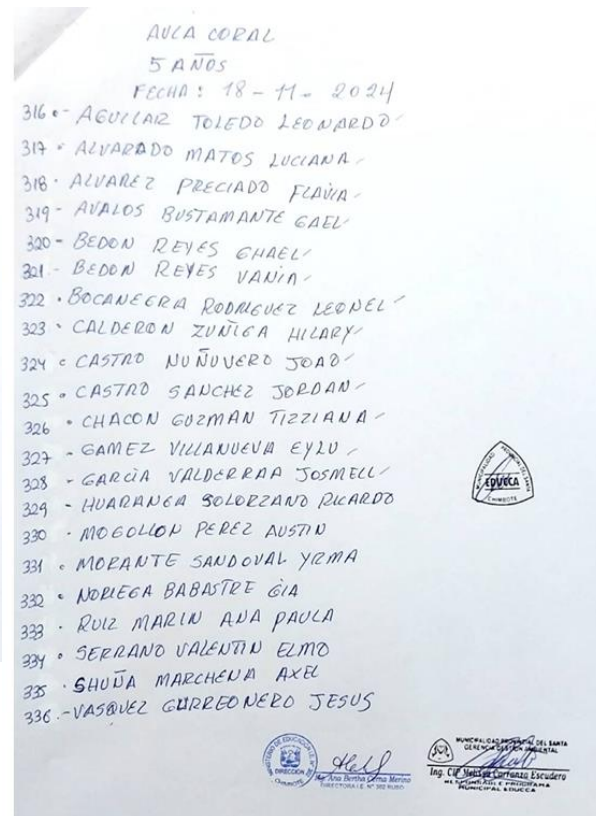 AULA CORAL
5 AÑOS
FECHA: 18-11-2024
316.- AGUILAR TOLEDO LEONARDO
317 - ALVARADO MATOS LUCIANA
318 - ALVAREZ PRECIADO FLAVIA
319 - AVALOS BUSTAMANTE GAEL
320 - BEDON REYES GHAEL
321.- BEDON REYES VANIA
322 - BOCANEGRA RODRIGUEZ LEONEL
323 - CALDERON ZUÑIGA HILARY
324 - CASTRO NUÑUVERO JOAO
325 - CASTRO SANCHEZ JORDAN
326 - CHACON GUZMAN TIZZIANA
327 - GAMEZ VILLANUEVA EYLU
328 - GARCÍA VALDERRAA JOSMELL
329 - HUARANGA SOLORZANO RICARDO
330 - MOGOLLON PEREZ AUSTIN
331 - MORANTE SANDOVAL YRMA
332 - NORIEGA BABASTRE GIA
333 - RUIZ MARIN ANA PAULA
334 - SERRANO VALENTIN ELMO
335 - SHUÑA MARCHENA AXEL
336.- VASQUEZ GURREONERO JESUS
MUNICIPALIDAD PROVINCIAL DEL SANTA
EDUCCA
CHIMBOTE
DIRECCION
Ana Bertha Merino
DIRECTORA I.E. N° 302
MUNICIPALIDAD PROVINCIAL DEL SANTA
GERENCIA GESTIÓN AMBIENTAL
Ing. CIP Melissa Carranza Escudero
RESPONSABLE PROGRAMA
MUNICIPAL EDUCCA